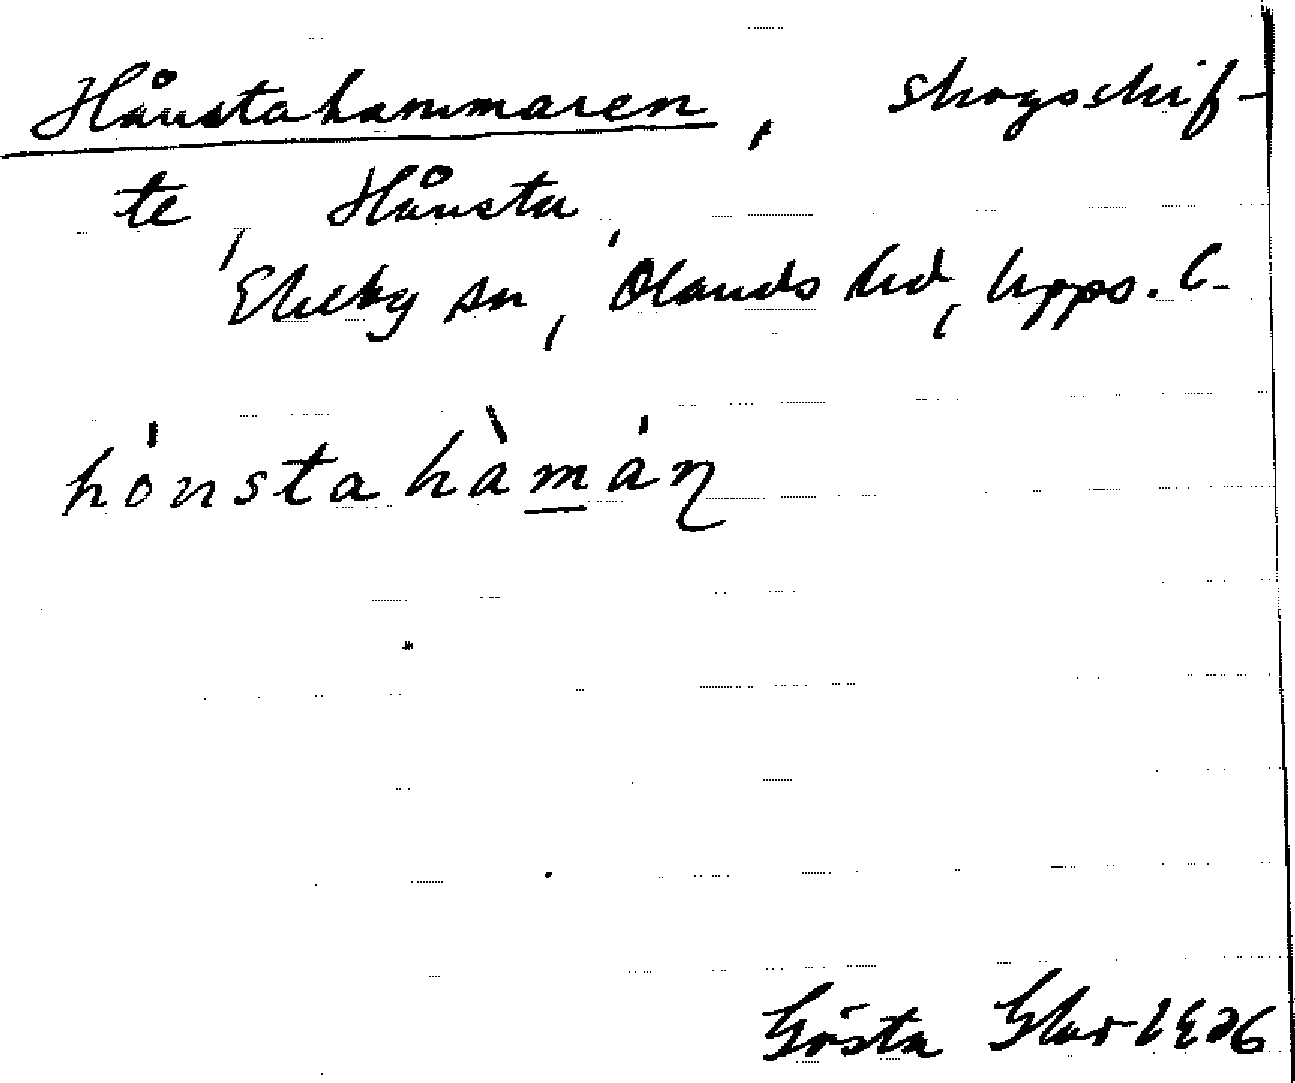 Hånstahammaren, skogsskif-
te, Hånsta,
Ekeby sn, Olands hd, Upps. l.
hónstahàmáṇ
Gösta